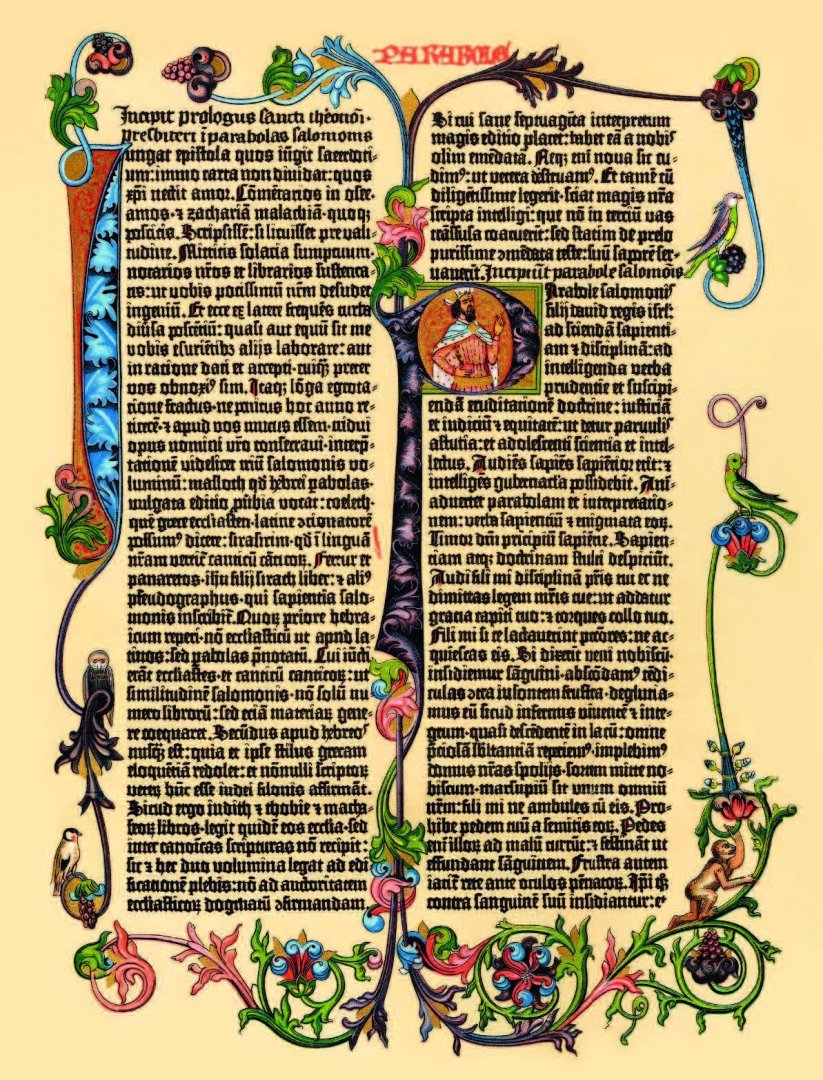 PARABOLE
Incipit prologus sancti iheronimi
presbiteri ī parabolas salomonis
Iungat epistola quos iūgit sacerdoti-
um: immo carta non dividat: quos
xp̄i nectit amor. Cōmētarios in osee.
amos. ⁊ zachariā malachiā. quoqꝫ
poscitis. Scripsissē: si licuisset pre vali-
tudine. Mittitis solacia sumptuum.
notarios nr̄os et librarios sustenta-
tis: ut vobis potissimū nr̄m desudet
ingeniū. Et ecce ex latere frequēs turba
diūsa poscētiū: quasi aut equū sit me
vobis esuriētibꝫ alijs laborare: aut
in ratione dati et accepti. cuiqꝫ preter
vos obnoxiꝰ sim. Itaqꝫ lōga egrota-
tione fractus. ne penitus hoc anno re-
ticerē. ⁊ apud vos mutus essem. tridui
opus nomini vr̄o consecravi. interp̄-
tationē videlicet triū salomonis vo-
luminū: masloth qd̄ hebrei pabolas.
vulgata editio p̄ubia vocat: coeleth.
quē grece ecclīasten. latine ꝯcionatorē
possumꝰ dicere: sirasirim. qd̄ ī linguā
nr̄am vertit᷑ canticū cāticoꝝ. Fertur et
panaretos. ihū filij sirach liber: ⁊ aliꝰ
pseudographus. qui sapientia salo-
monis inscribit᷑. Quoꝝ priore hebra-
icum reperi. nō ecclīasticū ut apud la-
tinos: sed pabolas p̄notatū. Cui iūcti
erāt ecclīastes. et canticū canticoꝝ: ut
similitudinē salomonis. nō solū nu-
mero librorū: sed eciā materiaꝝ gene-
re coequaret. Secūdus apud hebreos
nusqꝫ est: quia et ipse stilus grecam
eloquētiā redolet: et nōnulli scriptoꝝ
veteꝝ hūc esse iudei filonis affirmāt.
Sicud ergo iudith ⁊ thobie ⁊ macha-
beoꝝ libros. legit quidē eos ecclīa. sed
inter canoīcas scripturas nō recipit:
sic ⁊ hec duo volumina legat ad edi-
ficationē plebis: nō ad auctoritatem
ecclīasticoꝝ dogmatū ꝯfirmandam.
Si cui sane septuagīta interpretum
magis editio placet: habet eā a nobis
olim emēdatā. Neqꝫ em̄ nova sic cu-
dimꝰ: ut vetera destruamꝰ. Et tamē cū
diligētissime legerit. sciat magis nr̄a
scripta intelligi: que nō in terciū vas
trāsfusa coacuerīt: sed statim de prelo
purissime ꝯmēdata teste: suū saporē ser-
vaverīt. Incipiūt parabole salomōis
Parabole salomonis
filij david regis isrl̄:
ad sciendā sapienti-
am ⁊ disciplinā: ad
intelligenda verba
prudentie et suscipi-
endā eruditationē doctrine: iusticiā
et iudiciū ⁊ equitatē: ut detur parvulis
astutia: et adolescenti scientia et intel-
lectus. Audiēs sapiēs sapiētior erit: ⁊
intelligēs gubernacl̄a possidebit. Ani-
advertet parabolam et interpretatio-
nem: verba sapientiū ⁊ enigmata eoꝝ.
Timor dn̄i principiū sapiētie. Sapien-
tiam atqꝫ doctrinam stulti despiciūt.
Audi fili mi disciplinā pr̄is tui et ne
dimittas legem mr̄is tue: ut addatur
gracia capiti tuo: ⁊ torques collo tuo.
Fili mi si te lactaverint pctōres: ne ac-
quiescas eis. Si dixerīt veni nobiscū.
insidiemur sāguini. abscōdamꝰ tēdi-
culas ꝯtra īsontem frustra. degluti a-
mus eū sicud infernus viventē ⁊ inte-
grum. quasi descēdentē in lacū: omnē
p̄ciosā sb̄stantiā reperiemꝰ. implebimꝰ
domus nr̄as spolijs. sortem mitte no-
biscum. marsupiū sit unum omniū
nr̄m: fili mi ne ambules cū eis. Pro-
hibe pedem tuū a semitis eoꝝ. Pedes
em̄ illoꝝ ad malū currūt: ⁊ festināt ut
effundant sāguinem. Frustra autem
iacit᷑ rete ante oculos pēnatoꝝ. Ip̄i qꝫ
contra sanguinē suū insidiantur: et